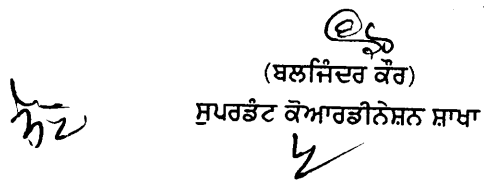 (ਬਲਜਿੰਦਰ ਕੌਰ)
ਸੁਪਰਡੰਟ ਕੋਆਰਡੀਨੇਸ਼ਨ ਸ਼ਾਖਾ